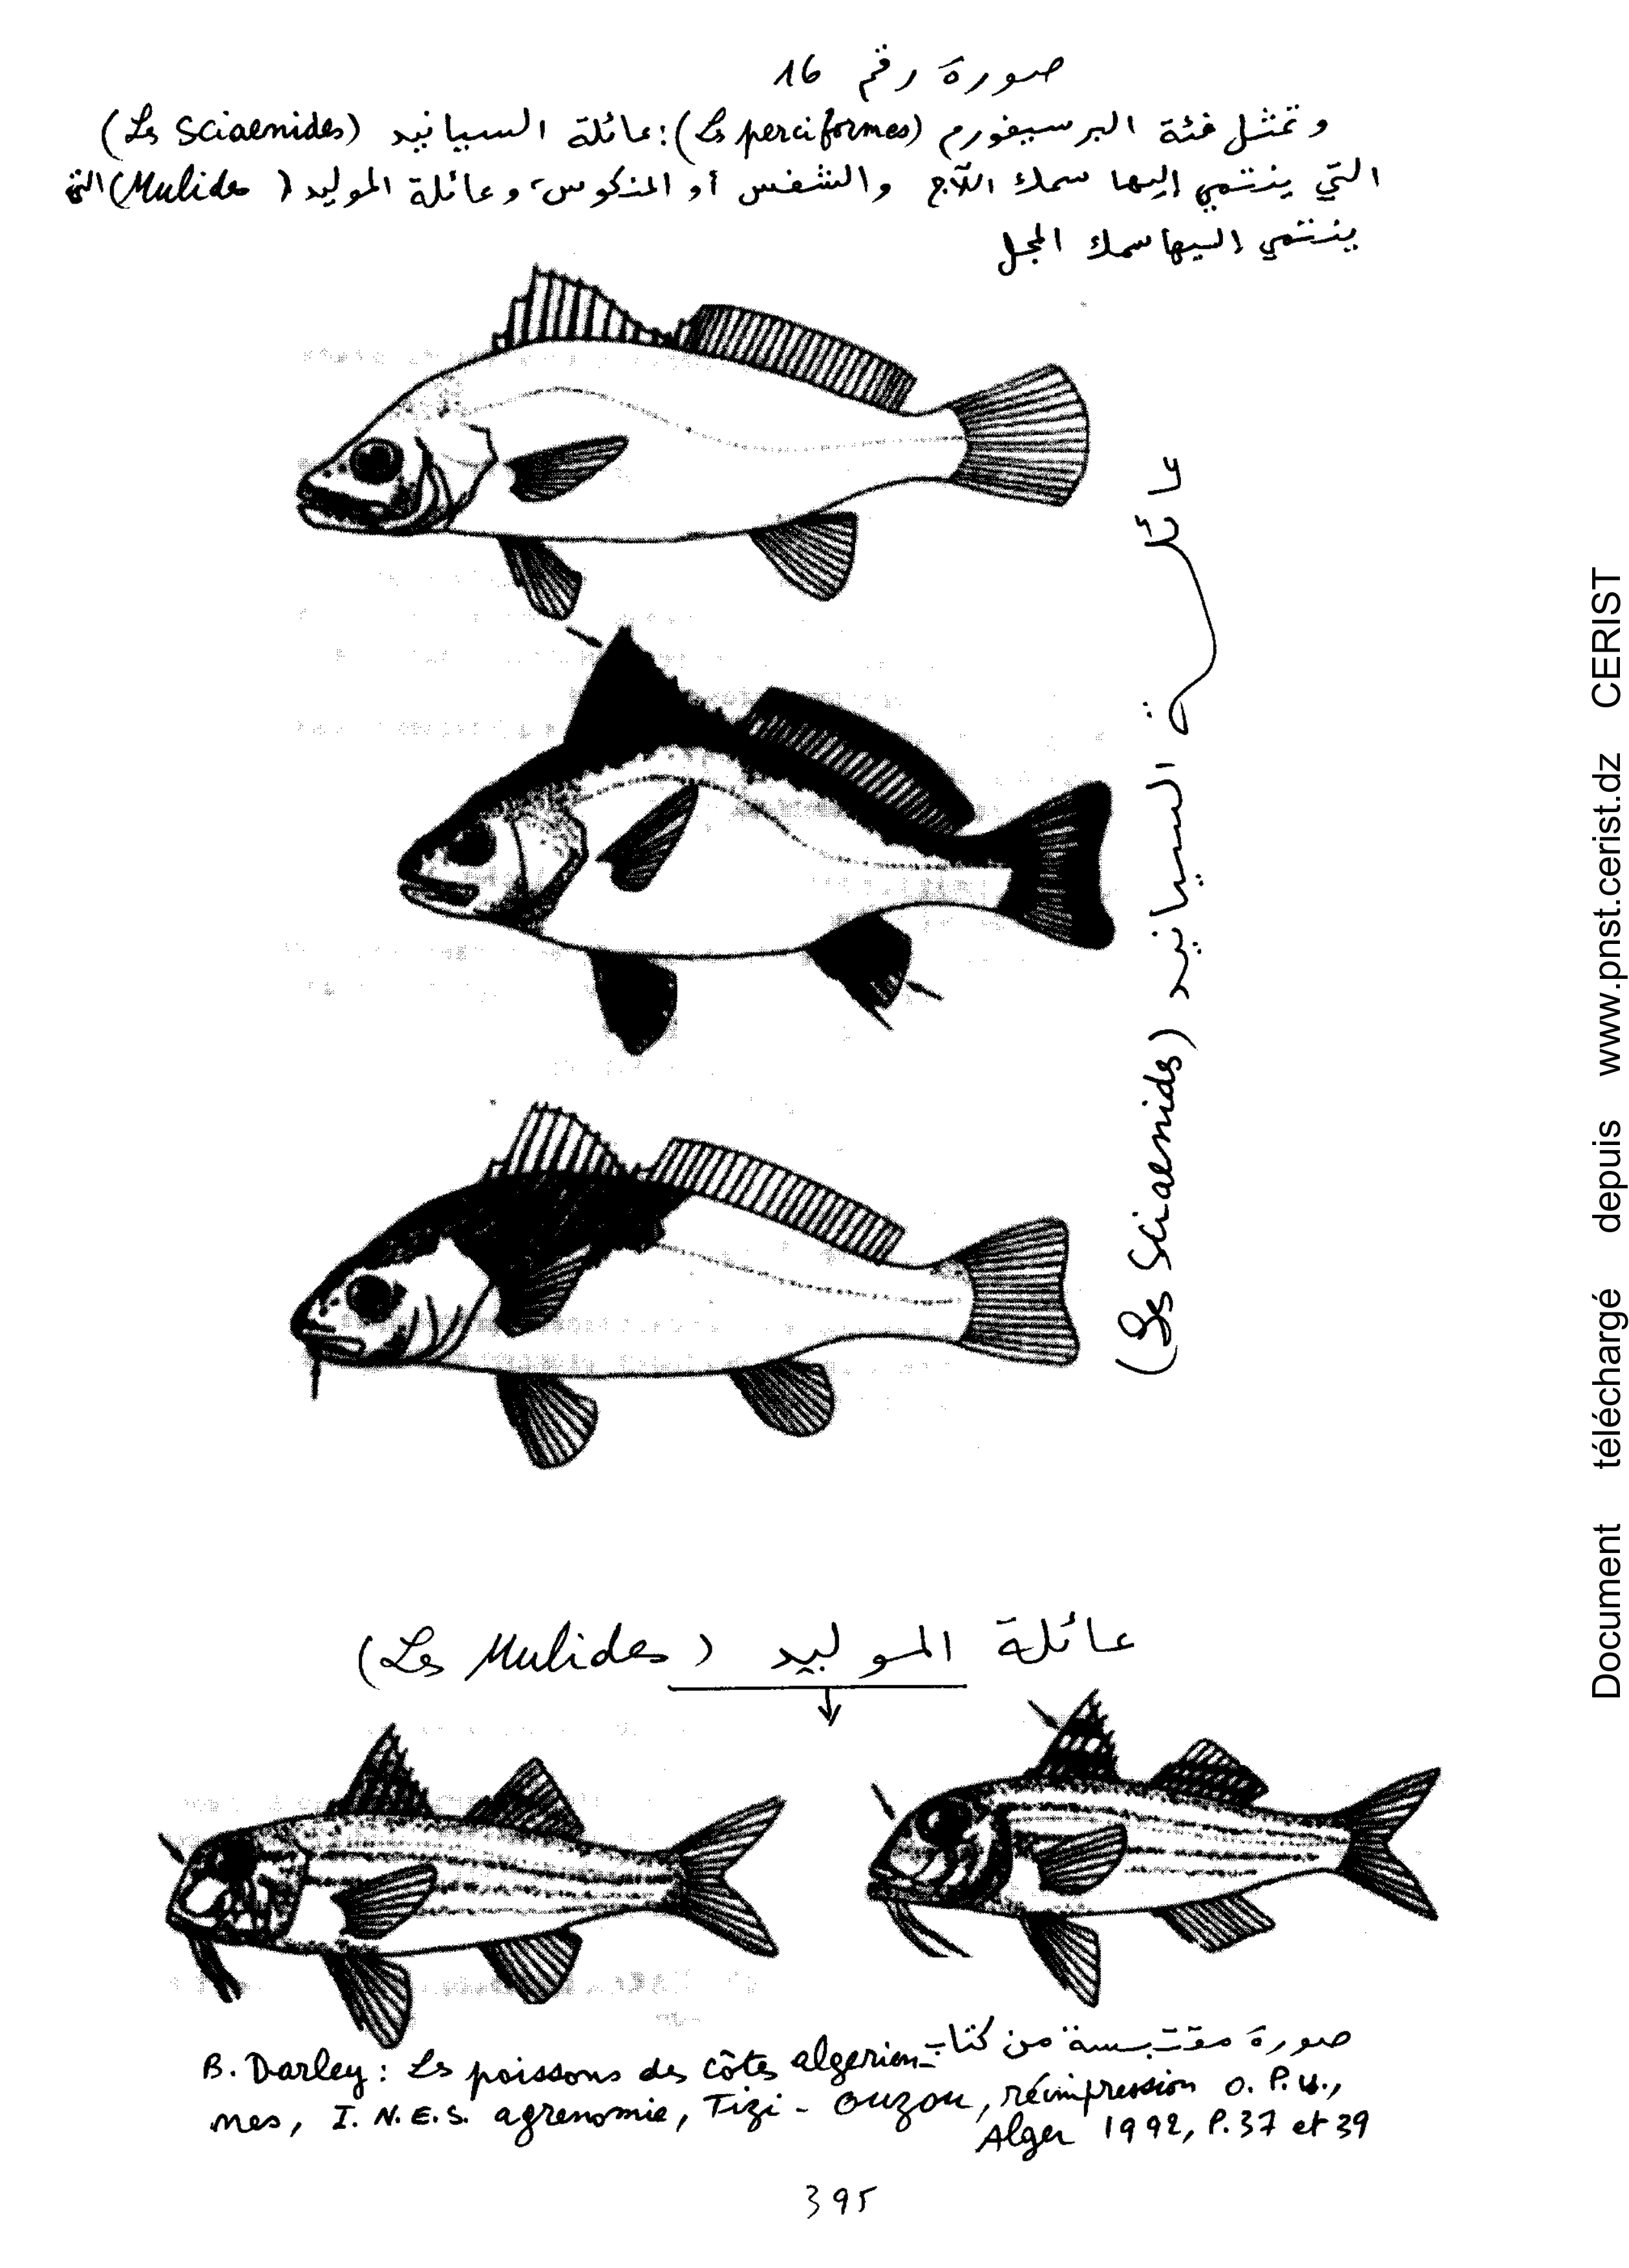 صورة رقم 16
وتمثل فئة البرسيفورم (Les perciformes): عائلة السيانيد (Les Sciaenides)
التي ينتمي إليها سمك اللاج والشفس أو المنكوس، وعائلة الموليد (Mulides) التي
ينتمي إليها سمك المجل
عائلة السيانيد (Les Sciaenids)
عائلة الموليد (Les Mulides)
صورة مقتبسة من كتاب
B. Darley: Les poissons des côtes algerien-
nes, I.N.E.S. agrenomie, Tizi-Ouzou, réimpression O.P.U.,
Alger 1992, P.37 et 39
395
Document téléchargé depuis www.pnst.cerist.dz CERIST